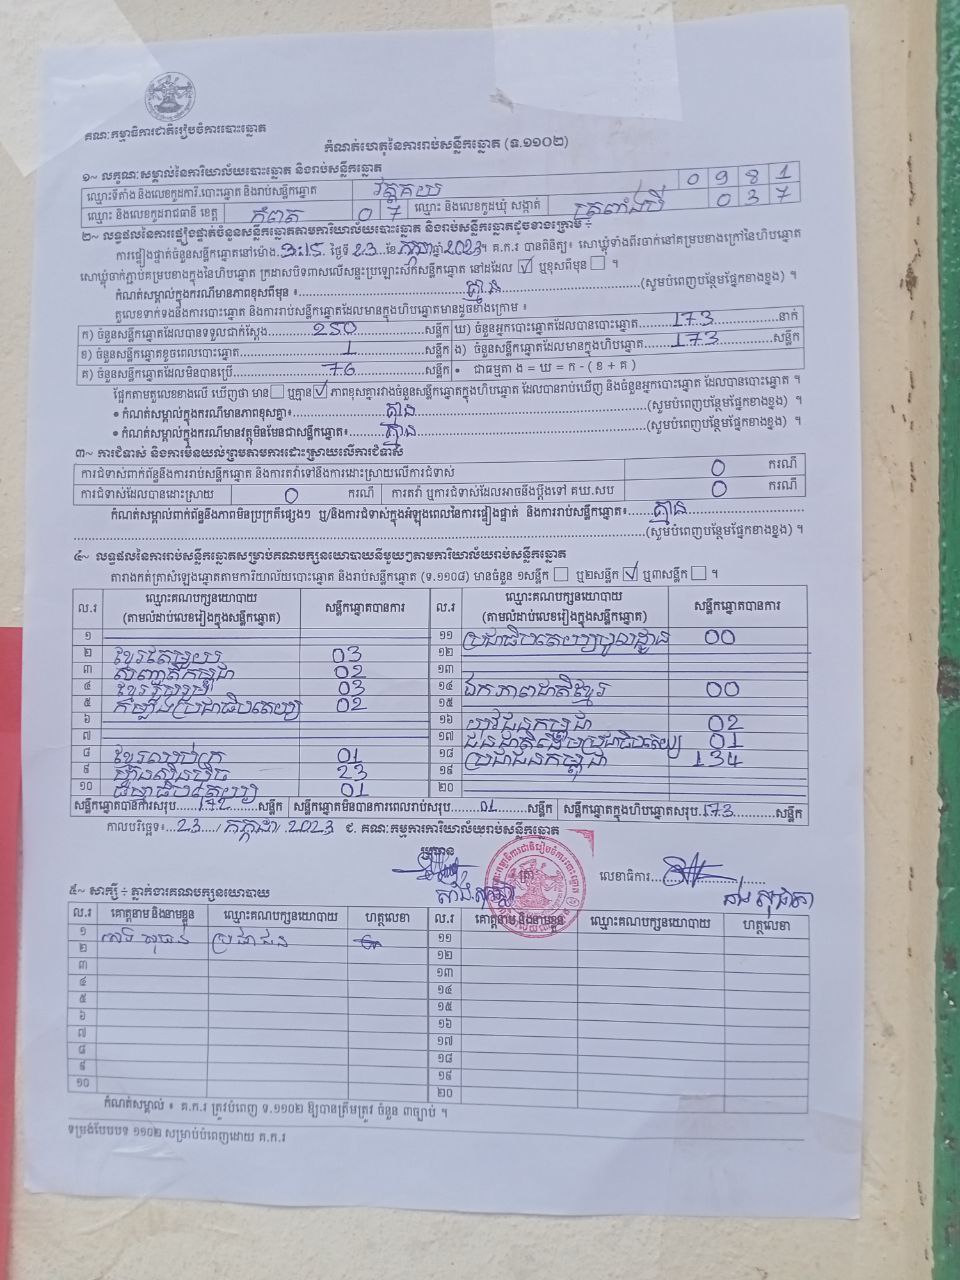 គណៈកម្មាធិការជាតិរៀបចំការបោះឆ្នោត
កំណត់ហេតុនៃការរាប់សន្លឹកឆ្នោត (ទ.១១០២)
១~ លក្ខណៈសម្គាល់នៃការិយាល័យបោះឆ្នោត និងរាប់សន្លឹកឆ្នោត
ឈ្មោះទីតាំង និងលេខកូដការិ.បោះឆ្នោត និងរាប់សន្លឹកឆ្នោត 0 9 8 1
ឈ្មោះ និងលេខកូដរាជធានី ខេត្ត កំពត 0 7 ឈ្មោះ និងលេខកូដឃុំ សង្កាត់ 0 3 7
២~ លទ្ធផលនៃការផ្ទៀងផ្ទាត់ចំនួនសន្លឹកឆ្នោតតាមការិយាល័យបោះឆ្នោត និងរាប់សន្លឹកឆ្នោតដូចខាងក្រោម ÷
ការផ្ទៀងផ្ទាត់ចំនួនសន្លឹកឆ្នោតនៅម៉ោង 3:15 ថ្ងៃទី 23 ខែ កក្កដា ឆ្នាំ 2023។ គ.ក.រ បានពិនិត្យ៖ សោឃ្លុំទាំងពីរចាក់នៅគម្របខាងក្រៅនៃហិបឆ្នោត
សោឃ្លុំចាក់ភ្ជាប់គម្របខាងក្នុងនៃហិបឆ្នោត ក្រដាសបិទពាសលើសន្ទះប្រឡោះស៊កសន្លឹកឆ្នោត នៅដដែល ☑ ឬខុសពីមុន ☐ ។
កំណត់សម្គាល់ក្នុងករណីមានភាពខុសពីមុន ៖ គ្មាន (សូមបំពេញបន្ថែមផ្នែកខាងខ្នង) ។
តួលេខទាក់ទងនឹងការបោះឆ្នោត និងការរាប់សន្លឹកឆ្នោតដែលមានក្នុងហិបឆ្នោតមានដូចខាងក្រោម ៖
ក) ចំនួនសន្លឹកឆ្នោតដែលបានទទួលជាក់ស្តែង 250 សន្លឹក ឃ) ចំនួនអ្នកបោះឆ្នោតដែលបានបោះឆ្នោត 173 នាក់
ខ) ចំនួនសន្លឹកឆ្នោតខូចពេលបោះឆ្នោត 1 សន្លឹក ង) ចំនួនសន្លឹកឆ្នោតដែលមានក្នុងហិបឆ្នោត 173 សន្លឹក
គ) ចំនួនសន្លឹកឆ្នោតដែលមិនបានប្រើ 76 សន្លឹក • ជាធម្មតា ង = ឃ = ក - ( ខ + គ )
ផ្អែកតាមតួលេខខាងលើ ឃើញថា មាន ☐ ឬគ្មាន ☑ ភាពខុសគ្នារវាងចំនួនសន្លឹកឆ្នោតក្នុងហិបឆ្នោត ដែលបានរាប់ឃើញ និងចំនួនអ្នកបោះឆ្នោត ដែលបានបោះឆ្នោត ។
• កំណត់សម្គាល់ក្នុងករណីមានភាពខុសគ្នា៖ គ្មាន (សូមបំពេញបន្ថែមផ្នែកខាងខ្នង) ។
• កំណត់សម្គាល់ក្នុងករណីមានវត្ថុមិនមែនជាសន្លឹកឆ្នោត៖ គ្មាន (សូមបំពេញបន្ថែមផ្នែកខាងខ្នង) ។
៣~ ការជំទាស់ និងការមិនយល់ព្រមតាមការដោះស្រាយលើការជំទាស់
ការជំទាស់ពាក់ព័ន្ធនឹងការរាប់សន្លឹកឆ្នោត និងការតវ៉ាទៅនឹងការដោះស្រាយលើការជំទាស់ 0 ករណី
ការជំទាស់ដែលបានដោះស្រាយ 0 ករណី ការតវ៉ា ឬការជំទាស់ដែលអាចនឹងប្តឹងទៅ គឃ.សប 0 ករណី
កំណត់សម្គាល់ពាក់ព័ន្ធនឹងភាពមិនប្រក្រតីផ្សេងៗ ឬ/និងការជំទាស់ក្នុងអំឡុងពេលនៃការផ្ទៀងផ្ទាត់ និងការរាប់សន្លឹកឆ្នោត៖ គ្មាន
(សូមបំពេញបន្ថែមផ្នែកខាងខ្នង) ។
៤~ លទ្ធផលនៃការរាប់សន្លឹកឆ្នោតសម្រាប់គណបក្សនយោបាយនីមួយៗតាមការិយាល័យរាប់សន្លឹកឆ្នោត
តារាងកត់ត្រាសំឡេងឆ្នោតតាមការិយាល័យបោះឆ្នោត និងរាប់សន្លឹកឆ្នោត (ទ.១១០៨) មានចំនួន ១សន្លឹក ☐ ឬ២សន្លឹក ☑ ឬ៣សន្លឹក ☐ ។
ល.រ ឈ្មោះគណបក្សនយោបាយ (តាមលំដាប់លេខរៀងក្នុងសន្លឹកឆ្នោត) សន្លឹកឆ្នោតបានការ ល.រ ឈ្មោះគណបក្សនយោបាយ (តាមលំដាប់លេខរៀងក្នុងសន្លឹកឆ្នោត) សន្លឹកឆ្នោតបានការ
១ ១១ ប្រជាធិបតេយ្យមូលដ្ឋាន 00
២ ខ្មែរតែមួយ 03 ១២
៣ សញ្ជាតិកម្ពុជា 02 ១៣
៤ ខ្មែររួបរួម 03 ១៤ ឯកភាពជាតិខ្មែរ 00
៥ កម្លាំងប្រជាធិបតេយ្យ 02 ១៥
៦ ១៦ យុវជនកម្ពុជា 02
៧ ១៧ ជនជាតិដើមប្រជាធិបតេយ្យ 01
៨ ខ្មែរឈប់ក្រ 01 ១៨ ប្រជាជនកម្ពុជា 134
៩ ហ៊្វុនស៊ិនប៉ិច 23 ១៩
១០ ធម្មាធិបតេយ្យ 01 ២០
សន្លឹកឆ្នោតបានការសរុប 172 សន្លឹក សន្លឹកឆ្នោតមិនបានការពេលរាប់សរុប 01 សន្លឹក សន្លឹកឆ្នោតក្នុងហិបឆ្នោតសរុប 173 សន្លឹក
កាលបរិច្ឆេទ៖ 23 / កក្កដា / 2023 ជ. គណៈកម្មការការិយាល័យរាប់សន្លឹកឆ្នោត
ប្រធាន
ត្រា
លេខាធិការ
៥~ សាក្សី ÷ ភ្នាក់ងារគណបក្សនយោបាយ
ល.រ គោត្តនាម និងនាមខ្លួន ឈ្មោះគណបក្សនយោបាយ ហត្ថលេខា ល.រ គោត្តនាម និងនាមខ្លួន ឈ្មោះគណបក្សនយោបាយ ហត្ថលេខា
១ ប្រជាជន ១១
២ ១២
៣ ១៣
៤ ១៤
៥ ១៥
៦ ១៦
៧ ១៧
៨ ១៨
៩ ១៩
១០ ២០
កំណត់សម្គាល់ ៖ គ.ក.រ ត្រូវបំពេញ ទ.១១០២ ឱ្យបានត្រឹមត្រូវ ចំនួន ៣ច្បាប់ ។
ទម្រង់បែបបទ ១១០២ សម្រាប់បំពេញដោយ គ.ក.រ